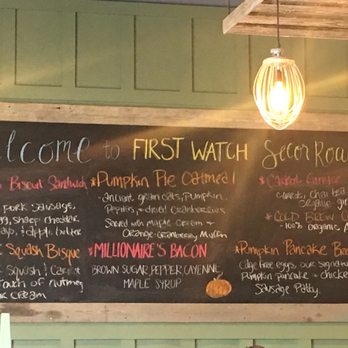 elcome to FIRST WATCH Secor Roa
Biscuit Sandwich
Pork Sausage,
egg, sharp cheddar
& apple butter
Squash Bisque
squash & carrot
touch of nutmeg
cream
*Pumpkin Pie Oatmeal!
ancient grain oats, pumpkin
pepitas + dried cranberries
Served with maple cream +
orange-cranberry muffin
*MILLIONAIRE'S BACON
BROWN SUGAR, PEPPER CAYENNE,
MAPLE SYRUP
carrot, chai tea
*COLD BREW
-100% organic
*Pumpkin Pancake Brea
Cage free eggs, our signatu
Pumpkin pancake + chicken
Sausage Patty.